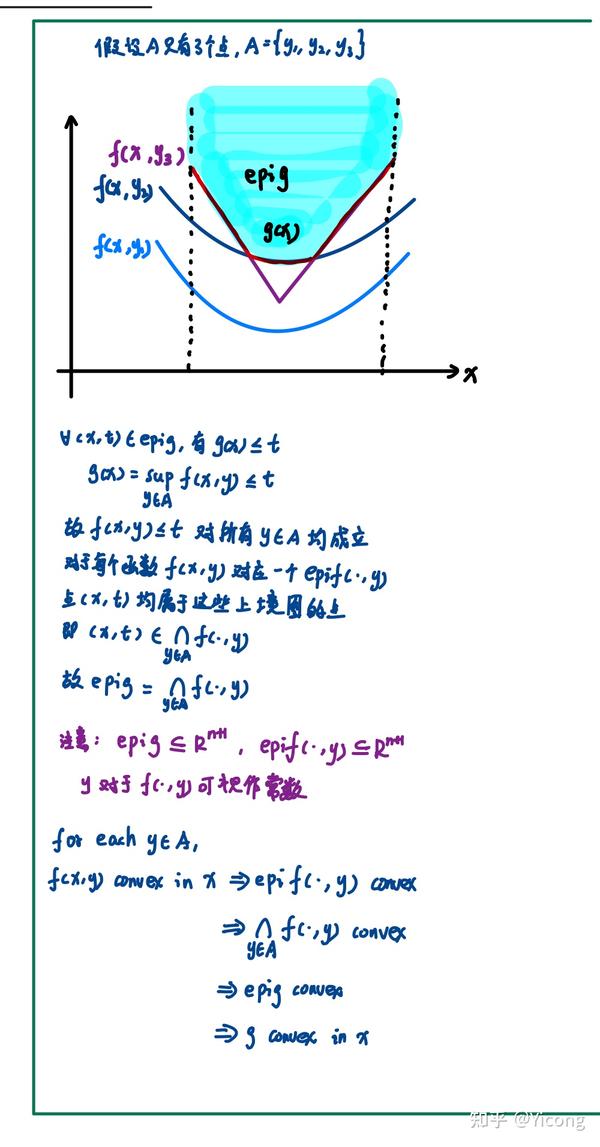 假设A只有3个点, A={y₁, y₂, y₃}
f(x,y₃)
epig
f(x,y₂)
g(x)
f(x,y₁)
x
∀(x,t)∈epig, 有 g(x)≤t
g(x)=sup f(x,y)≤t
y∈A
故 f(x,y)≤t 对所有 y∈A 均成立
对于每个函数 f(x,y) 对应一个 epif(·,y)
点(x,t)均属于这些上境图的点
即 (x,t) ∈ ∩ f(·,y)
y∈A
故 epig = ∩ f(·,y)
y∈A
注意: epig ⊆ Rⁿ⁺¹, epif(·,y)⊆Rⁿ⁺¹
y 对于 f(·,y) 可视作常数
for each y∈A,
f(x,y) convex in x ⇒ epif(·,y) convex
⇒ ∩ f(·,y) convex
y∈A
⇒ epig convex
⇒ g convex in x
知乎 @Yicong